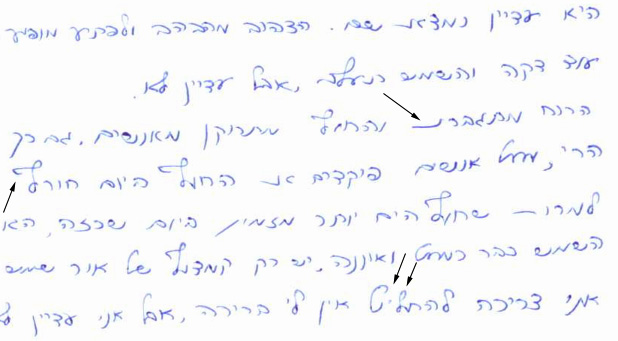 היא עדיין נמצאת שם. הצהוב מהבהב ולפתע מופיע
עוד דקה והשמש נעלמת, אבל עדיין לא.
הרוח מתגברת והחוף מתרוקן מאנשים. גם כך
הרי, מעט אנשים פוקדים את החוף היום חורף
למרות שחוף הים יותר מזמין ביום שכזה, האו
השמש כבר כמעט ואיננה, יש רק קמצוץ של אור שמש
אני צריכה להחליט אין לי ברירה, אבל אני עדיין